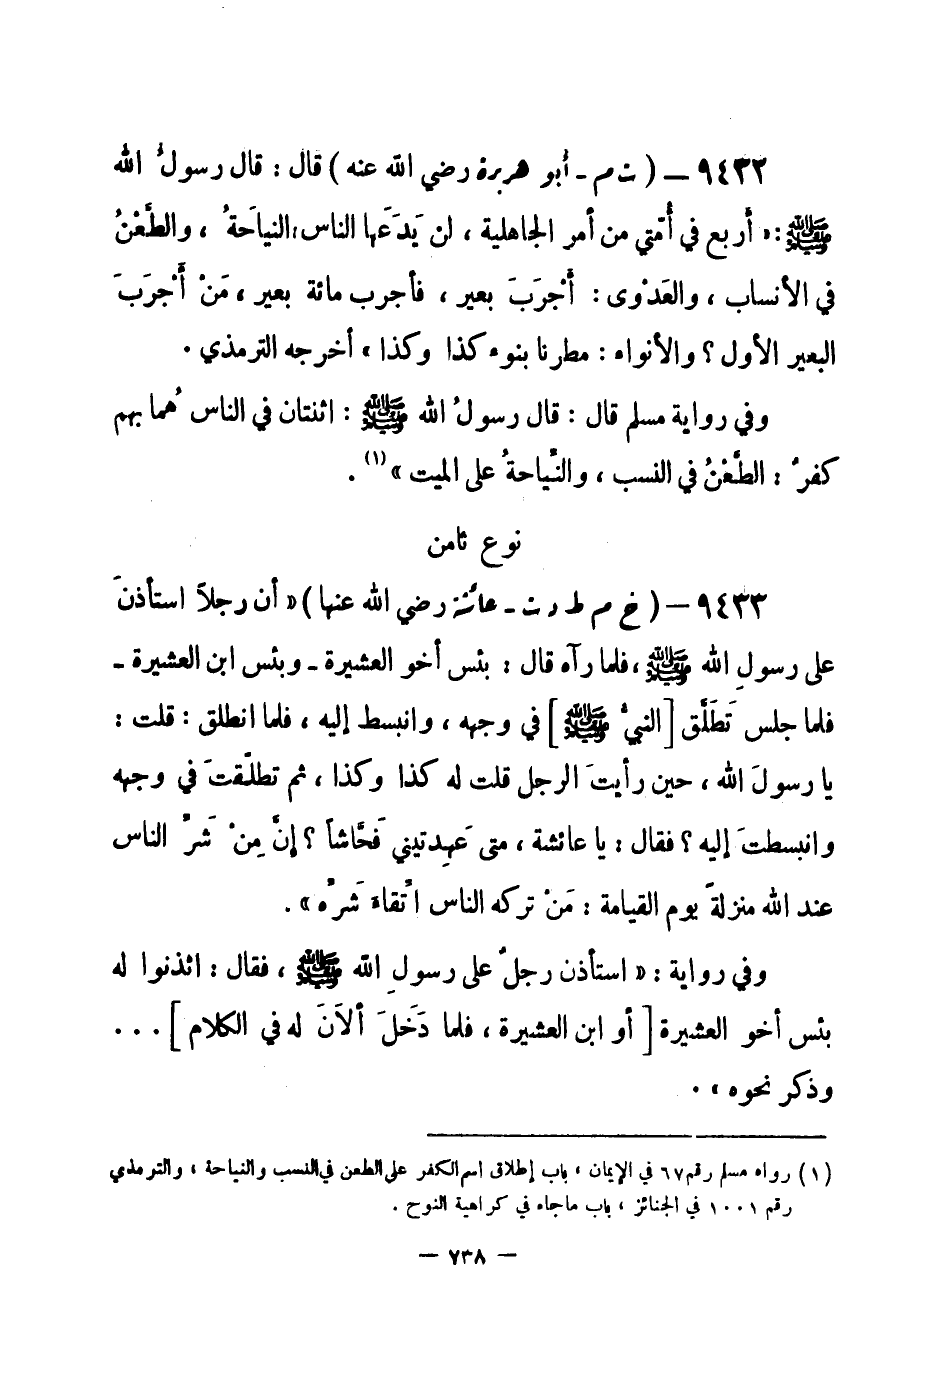 ٩٤٣٢ – ( ت م - أبو هريرة رضي الله عنه ) قال : قال رسولُ الله
ﷺ : « أربع في أُمَّتي من أمر الجاهلية ، لن يَدَعَها الناس : النياحَةُ ، والطَّعْنُ
في الأنساب ، والعَدْوى : أَجْرَبَ بعير ، فأجرب مائة بعير ، مَنْ أَجْرَبَ
البعير الأول ؟ والأنواء : مطرنا بنوء كذا وكذا » أخرجه الترمذي .
وفي رواية مسلم قال : قال رسولُ الله ﷺ : اثنتان في الناس هُما بهم
كفرٌ : الطَّعْنُ في النسب ، والنِّياحةُ على الميت » (١) .
نوع ثامن
٩٤٣٣ – ( خ م ط د ت - عائشة رضي الله عنها ) « أن رجلاً استأذنَ
على رسولِ الله ﷺ ، فلما رآه قال : بئس أخو العشيرة - وبئس ابن العشيرة -
فلما جلس تَطَلَّق [ النبيُّ ﷺ ] في وجهه ، وانبسط إليه ، فلما انطلق : قلت :
يا رسولَ الله ، حين رأيتَ الرجل قلت له كذا وكذا ، ثم تطلَّقتَ في وجهه
وانبسطتَ إليه ؟ فقال : يا عائشة ، متى عَهِدتيني فَحَّاشاً ؟ إنَّ مِنْ شَرِّ الناس
عند الله منزلةً يوم القيامة : مَنْ تركه الناس اتِّقاءَ شَرِّه » .
وفي رواية : « استأذن رجلٌ على رسولِ الله ﷺ ، فقال : ائذنوا له
بئس أخو العشيرة [ أو ابن العشيرة ، فلما دَخَلَ ألاَنَ له في الكلام ] . . .
وذكر نحوه » .
(١) رواه مسلم رقم ٦٧ في الإيمان ، باب إطلاق اسم الكفر على الطعن في النسب والنياحة ، والترمذي
رقم ١٠٠١ في الجنائز ، باب ماجاء في كراهية النوح .
– ٧٣٨ –